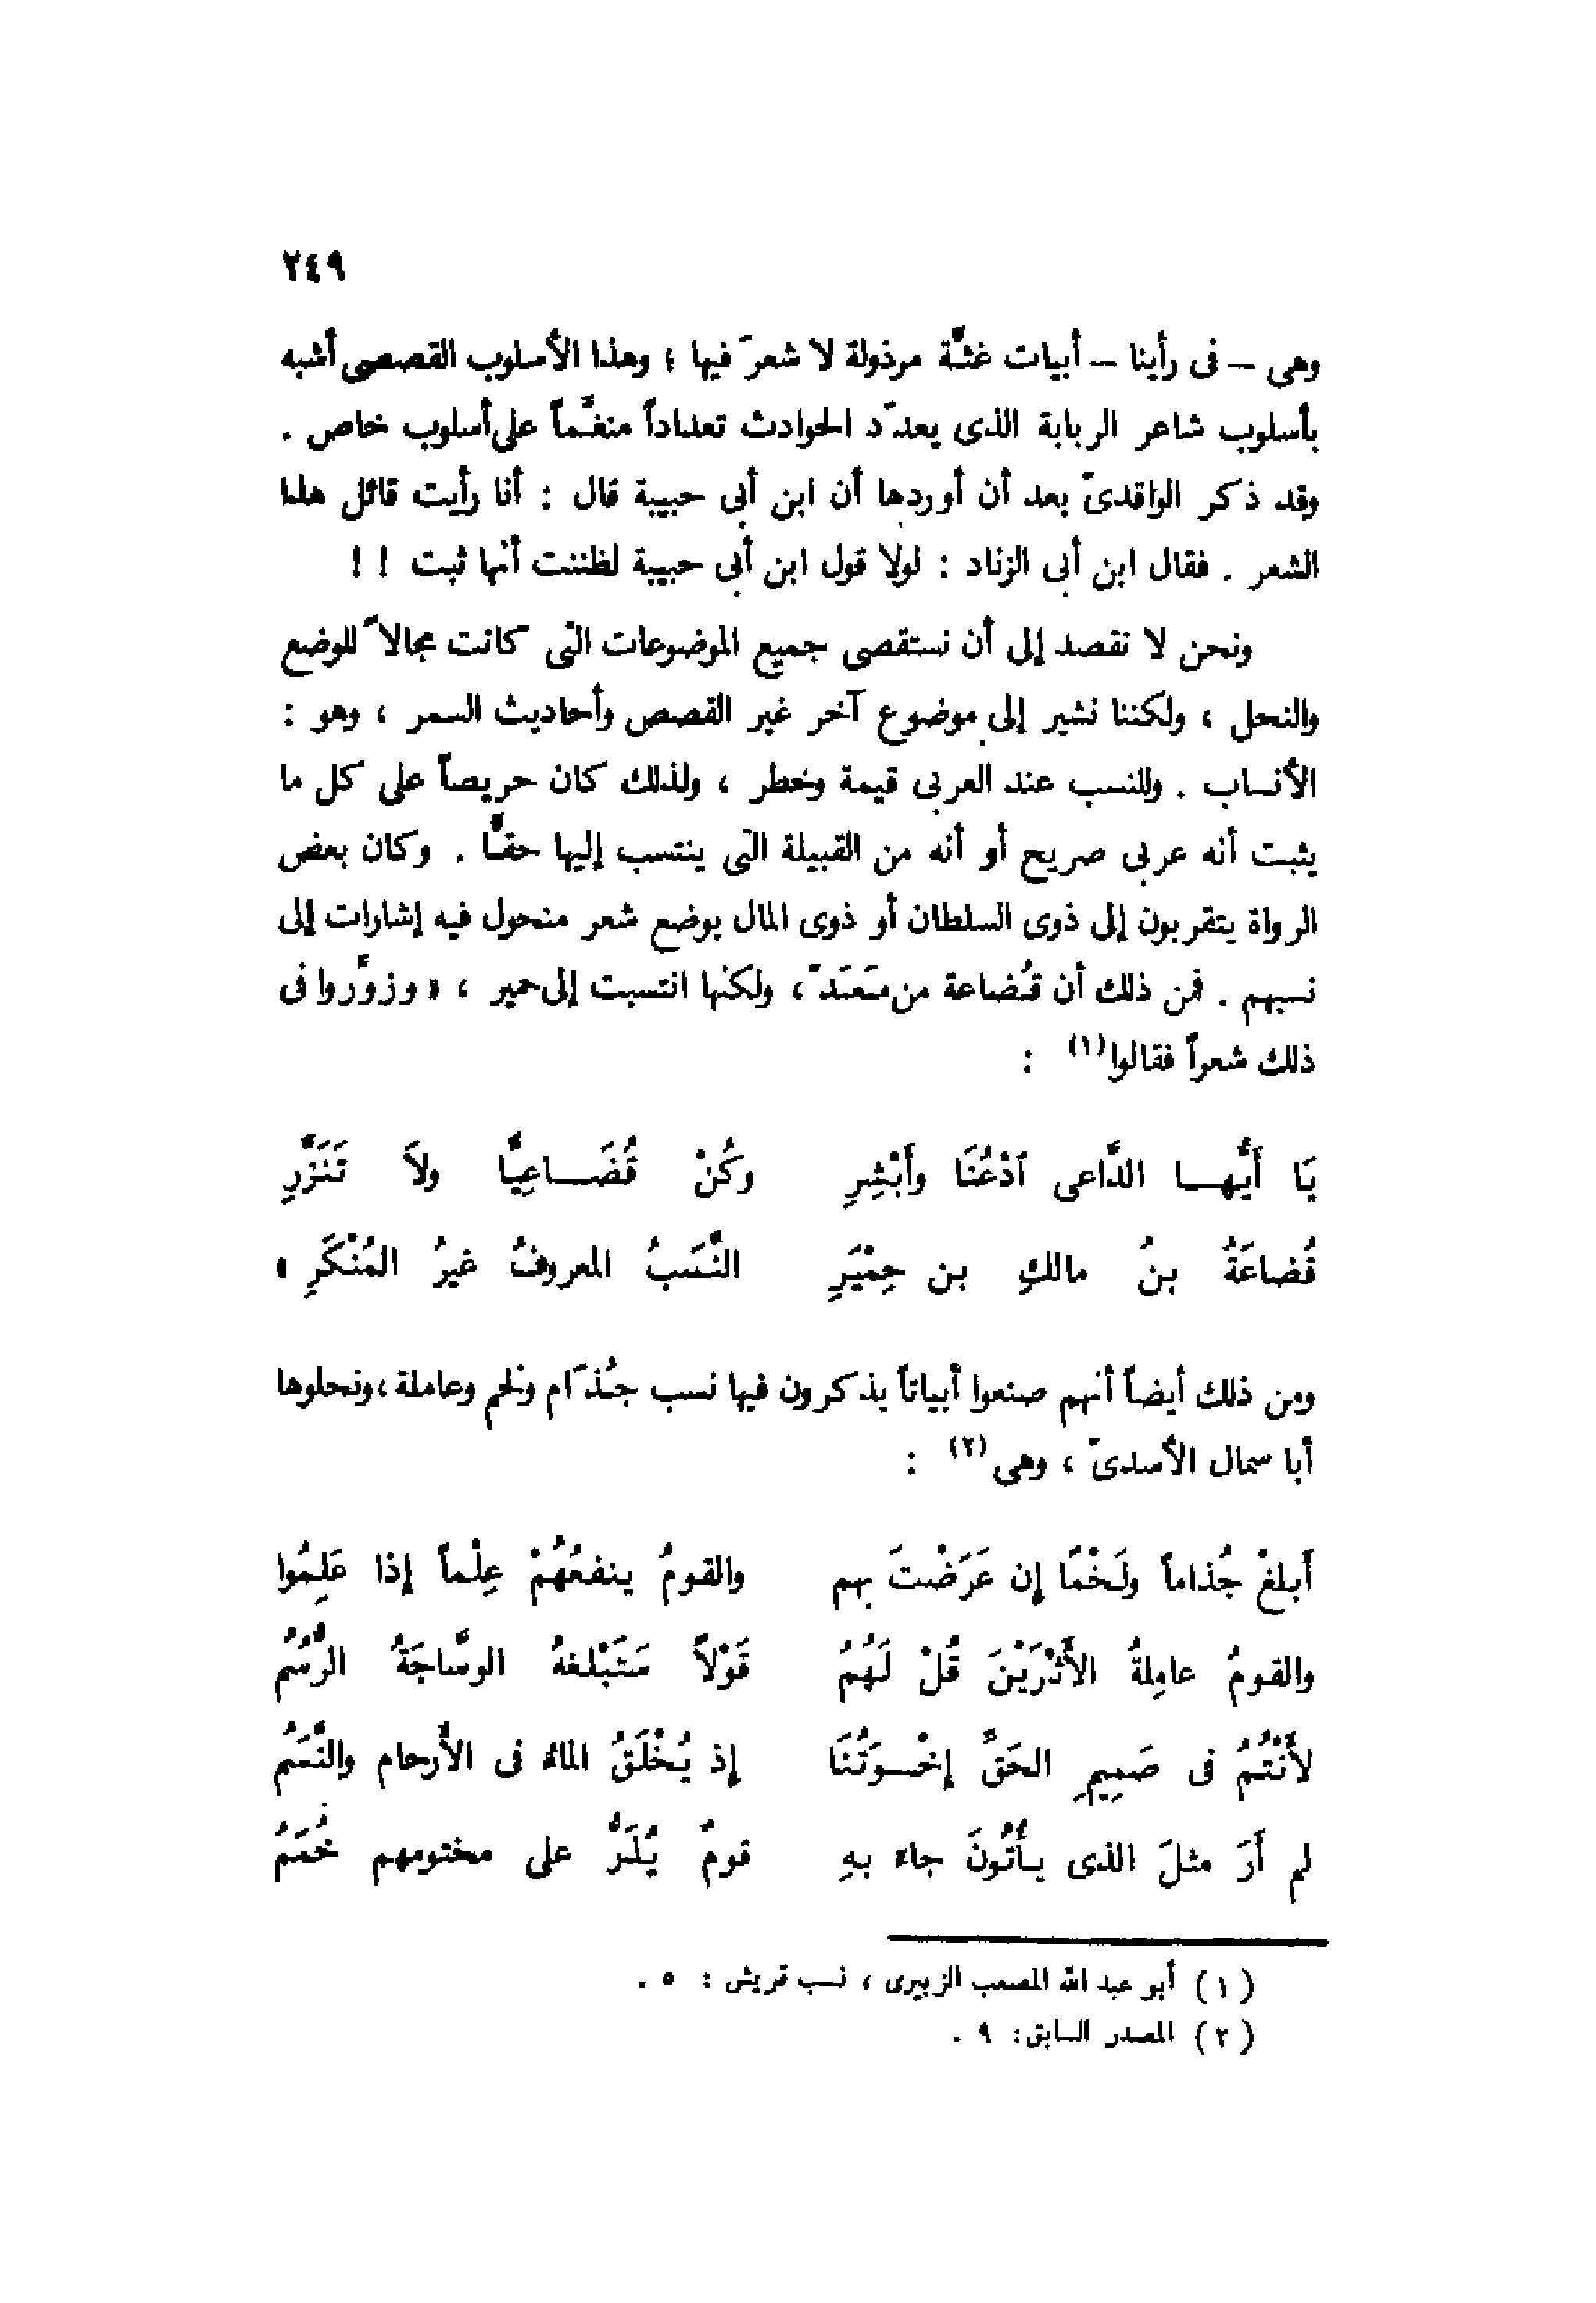 ٢٤٩
وهى – فى رأينا – أبيات غثَّة مرذولة لا شعرَ فيها ؛ وهذا الأسلوب القصصى أشبه
بأسلوب شاعر الربابة الذى يعدّد الحوادث تعداداً منغَّماً على أسلوب خاص .
وقد ذكر الواقدىّ بعد أن أوردها أن ابن أبى حبيبة قال : أنا رأيت قائل هذا
الشعر . فقال ابن أبى الزناد : لولا قول ابن أبى حبيبة لظننت أنها ثبت ! !
ونحن لا نقصد إلى أن نستقصى جميع الموضوعات التى كانت مجالاً للوضع
والنحل ، ولكننا نشير إلى موضوع آخر غير القصص وأحاديث السمر ، وهو :
الأنساب . وللنسب عند العربى قيمة وخطر ، ولذلك كان حريصاً على كل ما
يثبت أنه عربى صريح أو أنه من القبيلة التى ينتسب إليها حقًّا . وكان بعض
الرواة يتقربون إلى ذوى السلطان أو ذوى المال بوضع شعر منحول فيه إشارات إلى
نسبهم . فمن ذلك أن قُضاعة من مَعَدّ ، ولكنها انتسبت إلى حمير ، « وزوَّروا فى
ذلك شعراً فقالوا(١) :
يَا أَيُّهـــا الدَّاعى ٱدْعُنَا وأَبْشِرِ وكُنْ قُضَـــاعِيًّا ولاَ تَنَزَّرِ
قُضاعَةُ بنُ مالكِ بن حِمْيَرِ النَّسَبُ المعروفُ غيرُ المُنْكَرِ »
ومن ذلك أيضاً أنهم صنعوا أبياتاً يذكرون فيها نسب جُذَام ولخم وعاملة ، ونحلوها
أبا سمال الأسدىّ ، وهى(٢) :
أَبلغْ جُذاماً ولَخْمًا إن عَرَضْتَ بهم والقومُ ينفعُهُمْ عِلْماً إذا عَلِمُوا
والقومُ عامِلةُ الأَثْرَيْنَ قُلْ لَهُمُ قَوْلاً سَتَبْلغهُ الوسَّاجَةُ الرُّسُمُ
لأَنْتُمُ فى صَمِيمِ الحَقِّ إخْــوَتُنَا إذ يُخْلَقُ الماءُ فى الأَرحام والنَّسَمُ
لم أَرَ مثلَ الذى يأْتُونَ جاء بهِ قومٌ يُدَرُّ على مختومهم خُمَمُ
(١) أبو عبد الله المصعب الزبيرى ، نسب قريش : ٥ .
(٢) المصدر السابق : ٩ .